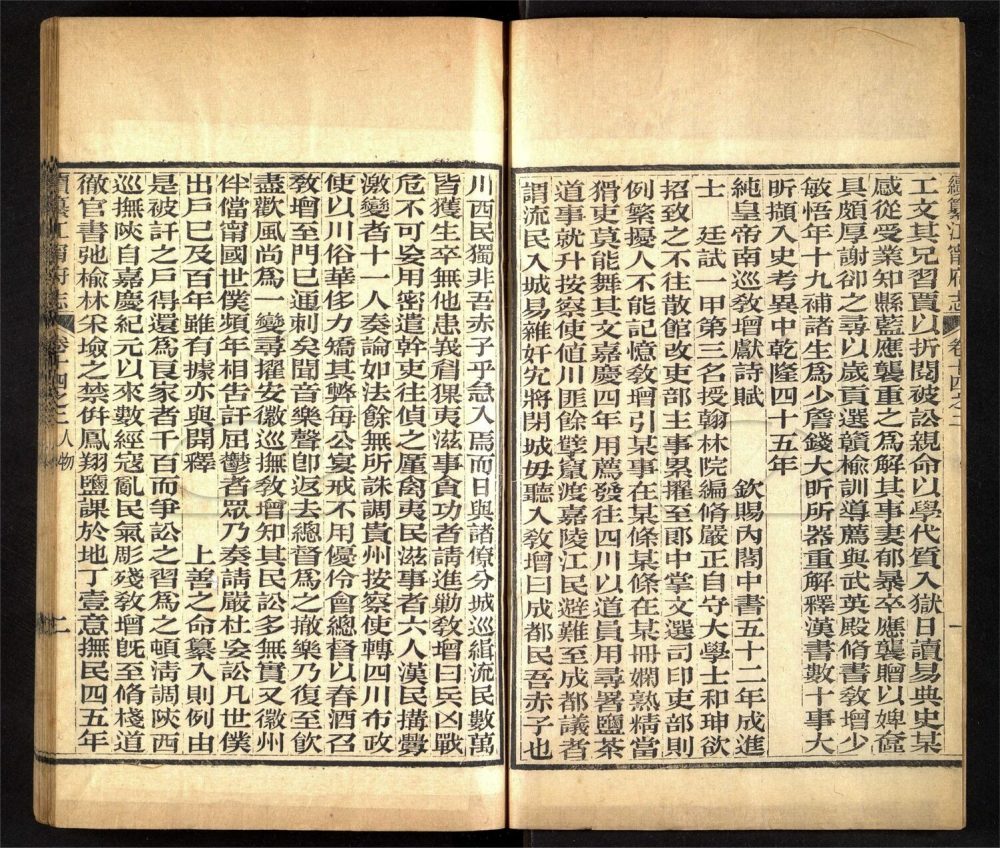 續纂江甯府志 卷十四之二 一
工文其兄習賈以折閱被訟親命以學代質入獄日讀易典史某
感從受業知縣藍應襲重之為解其事妻郁暴卒應襲贈以婢奩
具頗厚謝卻之尋以歲貢選贛榆訓導薦與武英殿脩書敎增少
敏悟年十九補諸生為少詹錢大昕所器重解釋漢書數十事大
昕擷入史考異中乾隆四十五年
純皇帝南巡敎增獻詩賦 欽賜內閣中書五十二年成進
士 廷試一甲第三名授翰林院編脩嚴正自守大學士和珅欲
招致之不往散館改吏部主事累擢至郎中掌文選司印吏部則
例繁擾人不能記憶敎增引某事在某條某條在某冊嫻熟精當
猾吏莫能舞其文嘉慶四年用薦發往四川以道員用尋署鹽茶
道事就升按察使値川匪餘孽竄渡嘉陵江民避難至成都議者
謂流民入城易雜奸宄將閉城毋聽入敎增曰成都民吾赤子也
川西民獨非吾赤子乎急入焉而日與諸僚分城巡緝流民數萬
皆獲生卒無他患峩倉猓夷滋事貪功者請進勦敎增曰兵凶戰
危不可妄用密遣幹吏往偵之厪禽夷民滋事者六人漢民搆釁
激變者十一人奏論如法餘無所誅調貴州按察使轉四川布政
使以川俗華侈力矯其弊每公宴戒不用優伶會總督以春酒召
敎增至門已通刺矣聞音樂聲卽返去總督為之撤樂乃復至飮
盡歡風尚為一變尋擢安徽巡撫敎增知其民訟多無實又徽州
伴儅甯國世僕頻年相告訐屈鬱者眾乃奏請嚴杜妄訟凡世僕
出戶已及百年雖有據亦與開釋 上善之命纂入則例由
是被訐之戶得還為良家者千百而爭訟之習為之頓淸調陝西
巡撫陝自嘉慶紀元以來數經寇亂民氣彫殘敎增旣至脩棧道
徹官書弛榆林采墽之禁倂鳳翔鹽課於地丁壹意撫民四五年
續纂江甯府志 卷十四之二 人物 二